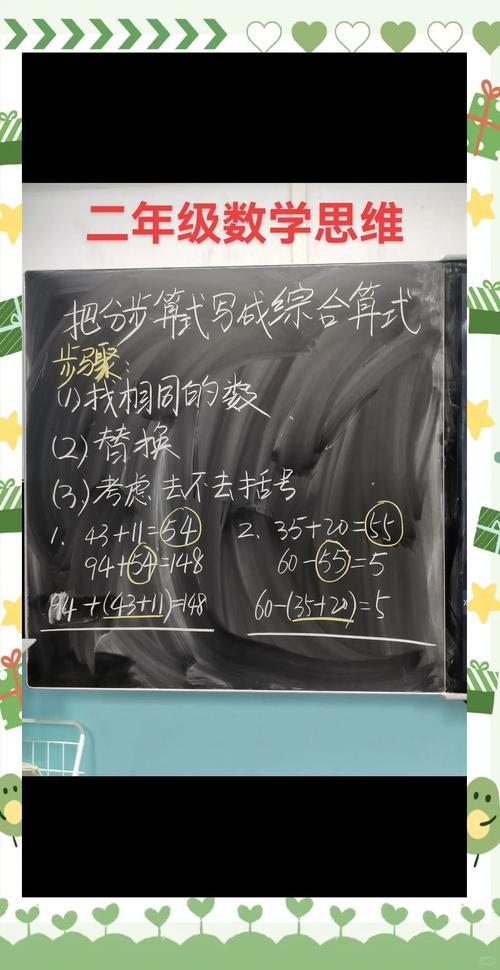 二年级数学思维
把分步算式写成综合算式
步骤:
(1)找相同的数
(2)替换
(3)考虑去不去括号
1. 43+11=54
94+54=148
94+(43+11)=148
2. 35+20=55
60-55=5
60-(35+20)=5